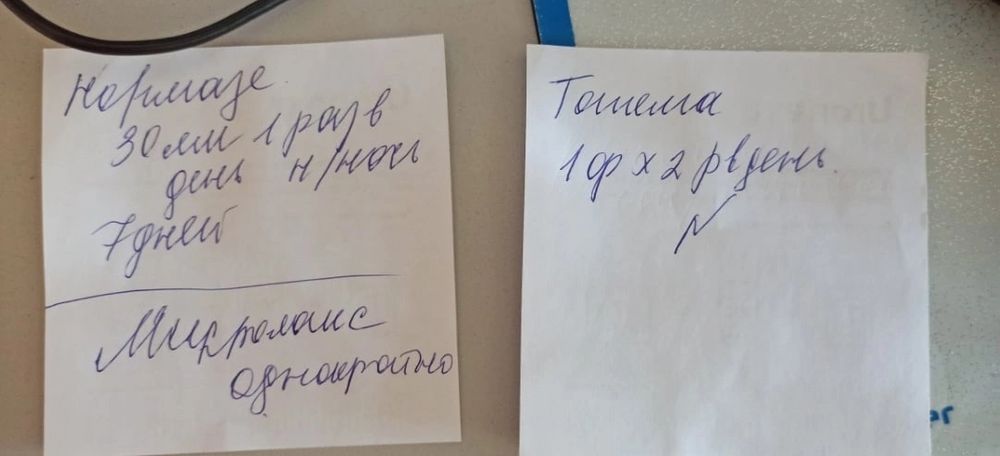 Нормазе
30 мл 1 раз в
день н/ночь
7 дней
Микролакс
однократно
Тотема
1 ф х 2 р в день